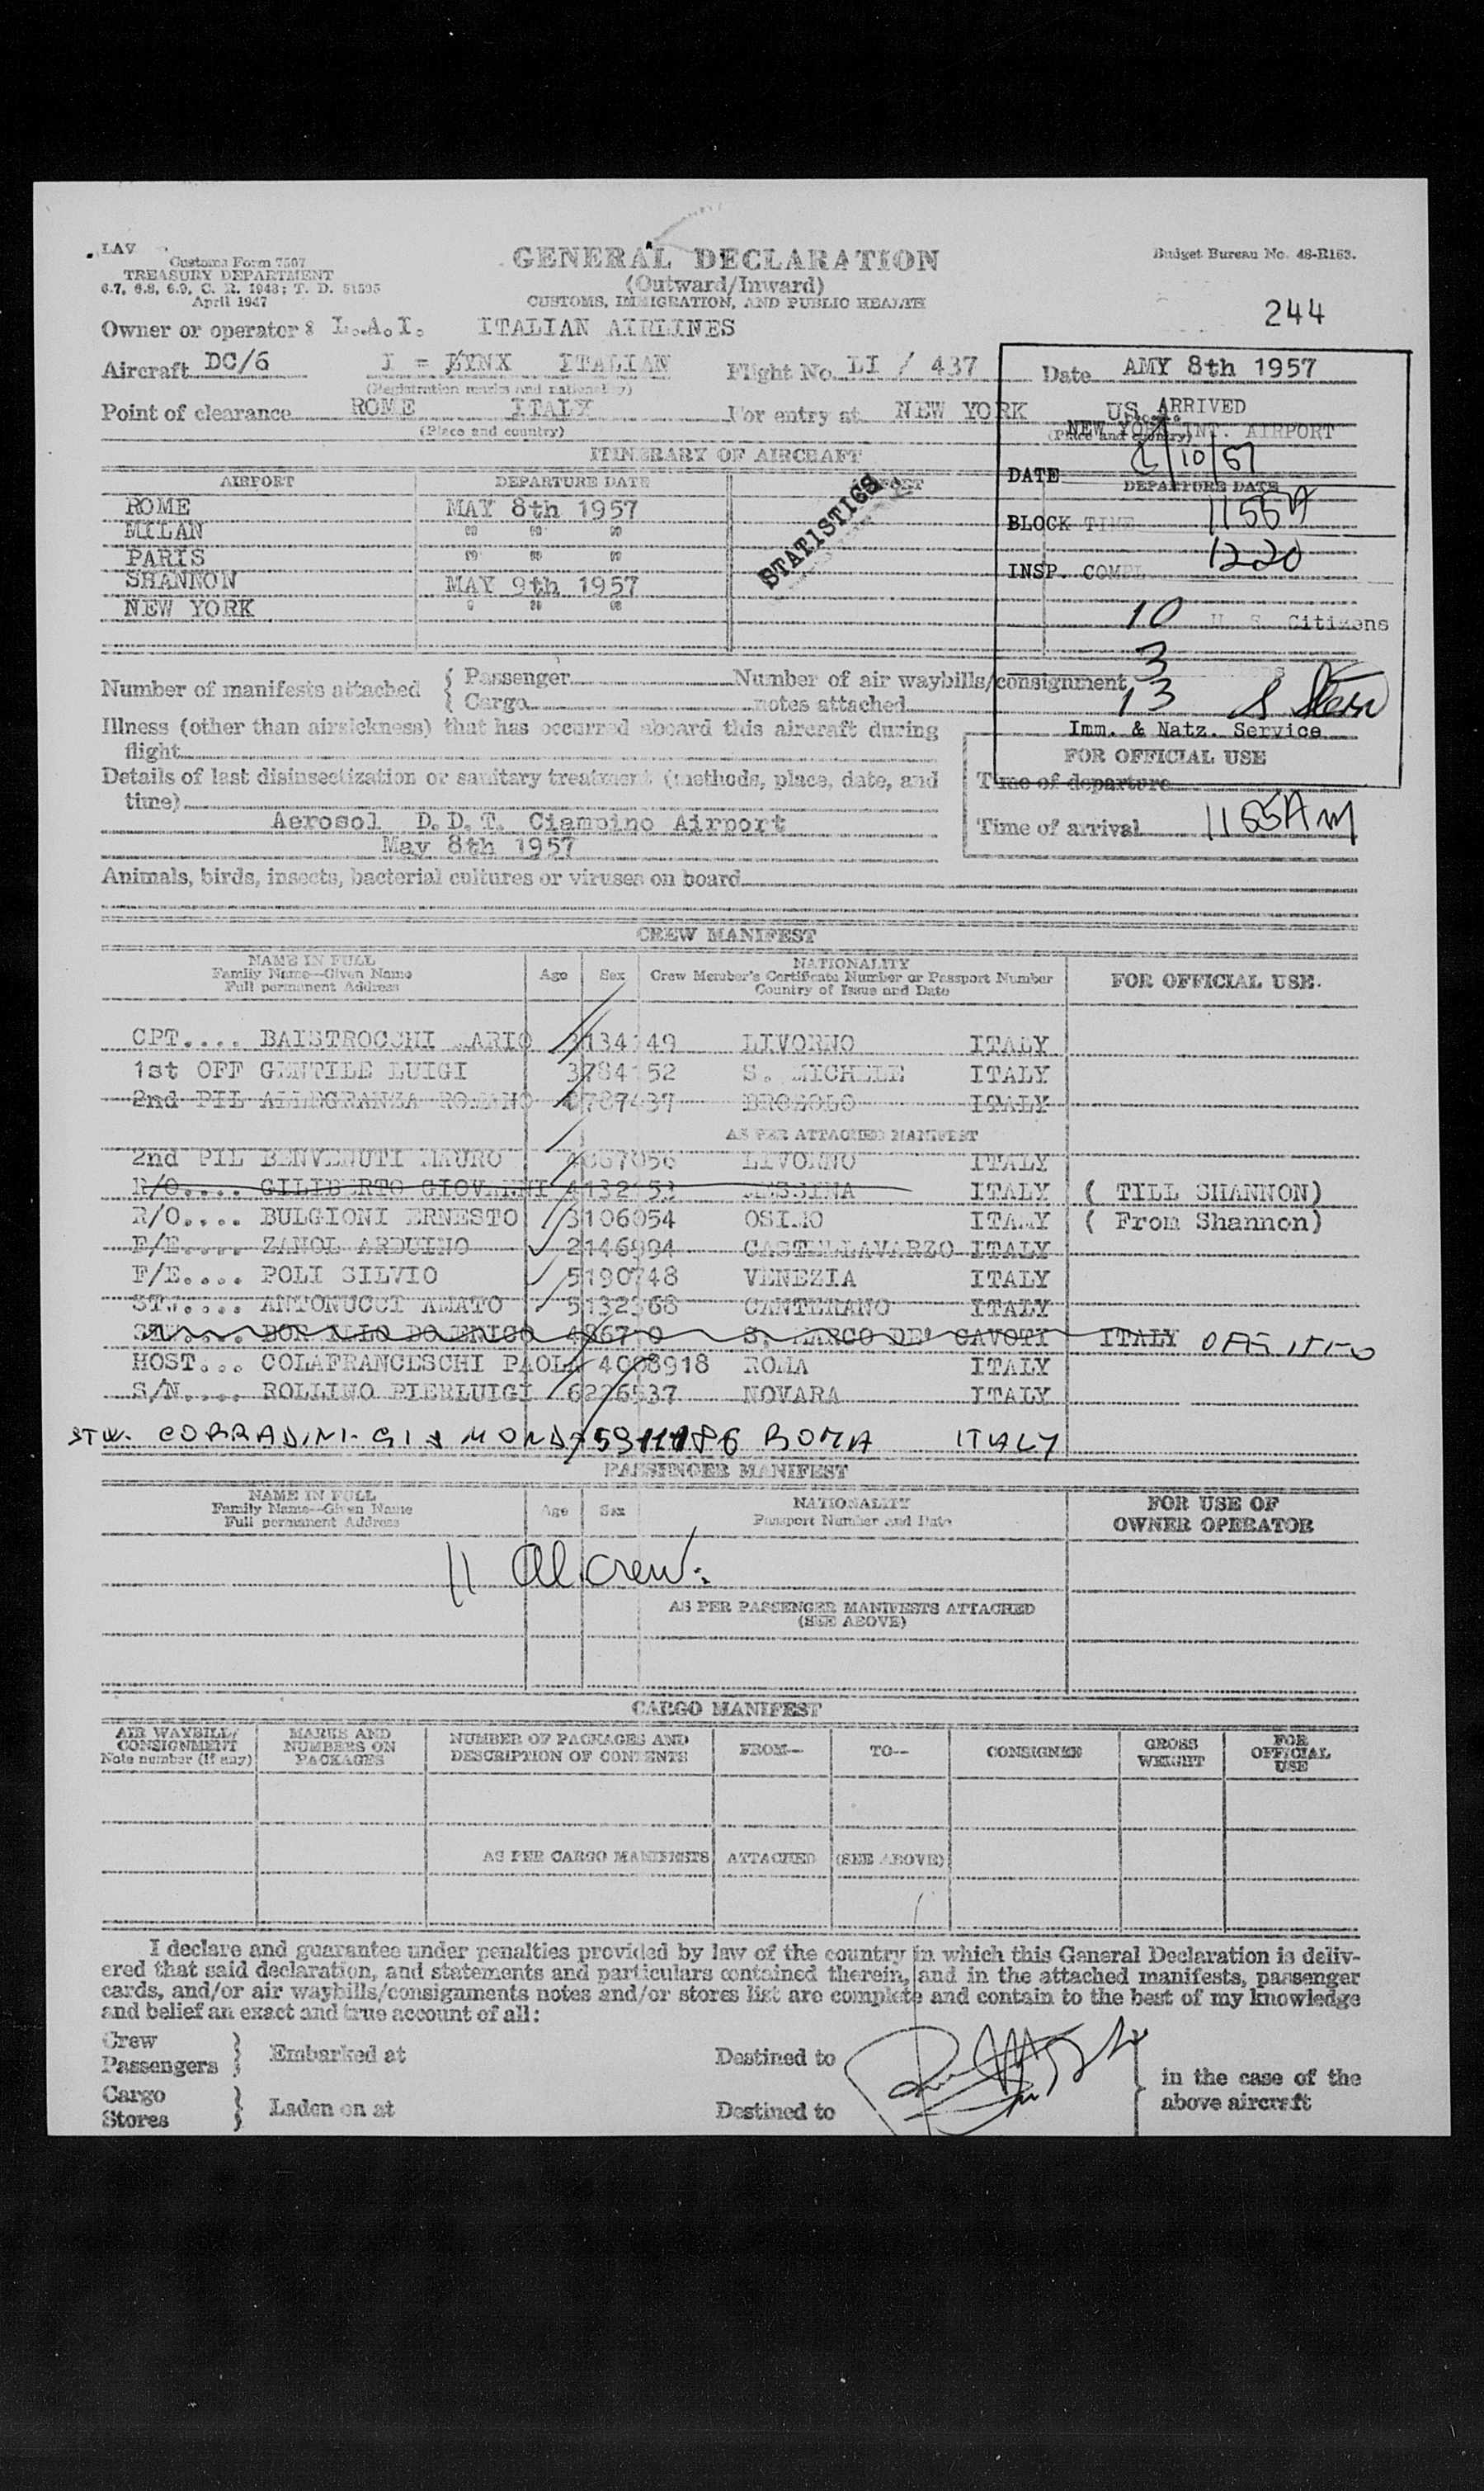 LAV
Customs Form 7507
TREASURY DEPARTMENT
6.7, 6.8, 6.9, C. R. 1943; T. D. 51595
April 1947
GENERAL DECLARATION
(Outward/Inward)
CUSTOMS, IMMIGRATION, AND PUBLIC HEALTH
Budget Bureau No. 48-R163.
244
Owner or operator L.A.I. ITALIAN AIRLINES
Aircraft DC/6 I = ITALIAN Flight No. LI / 437 Date AMY 8th 1957
(Registration marks and nationality)
Point of clearance ROME ITALY For entry at NEW YORK US
(Place and country) (Place and country)
ARRIVED
NEW YORK INT. AIRPORT
DATE /10/57
BLOCK TIME 1155A
INSP. COMPL 1220
10 U. S. Citizens
3
13
Imm. & Natz. Service
ITINERARY OF AIRCRAFT
AIRPORT DEPARTURE DATE AIRPORT DEPARTURE DATE
ROME MAY 8th 1957
MILAN " " "
PARIS " " "
SHANNON MAY 9th 1957
NEW YORK " " "
STATISTICS
Number of manifests attached { Passenger Number of air waybills/consignment
Cargo notes attached
Illness (other than airsickness) that has occurred aboard this aircraft during
flight
Details of last disinsectization or sanitary treatment (methods, place, date, and
time)
Aerosol D.D.T. Ciampino Airport
May 8th 1957
FOR OFFICIAL USE
Time of departure
Time of arrival 1155AM
Animals, birds, insects, bacterial cultures or viruses on board
CREW MANIFEST
NAME IN FULL
Family Name—Given Name
Full permanent Address
Age
Sex
NATIONALITY
Crew Member's Certificate Number or Passport Number
Country of Issue and Date
FOR OFFICIAL USE.
CPT.... BAISTROCCHI MARIO LIVORNO ITALY
1st OFF GENTILE LUIGI S. MICHELE ITALY
2nd PIL ALLEGRANZA ROMANO BROZOLO ITALY
AS PER ATTACHED MANIFEST
2nd PIL BENVENUTI MAURO LIVORNO ITALY
R/O.... GILIBERTO GIOVANNI MESSINA ITALY ( TILL SHANNON)
R/O.... BULGIONI ERNESTO 3106054 OSIMO ITALY ( From Shannon)
F/E.... ZANOL ARDUINO 2146994 CASTELLAVARZO ITALY
F/E.... POLI SILVIO 5190748 VENEZIA ITALY
STW.... ANTONUCCI AMATO 5132368 CANTERANO ITALY
S. MARCO DE' CAVOTI ITALY
HOST... COLAFRANCESCHI PAOLA 4008918 ROMA ITALY
S/N.... ROLLINO PIERLUIGI 6226537 NOVARA ITALY
STW. CORRADINI ROMA ITALY
PASSENGER MANIFEST
NAME IN FULL
Family Name—Given Name
Full permanent Address
Age
Sex
NATIONALITY
Passport Number and Date
FOR USE OF
OWNER OPERATOR
11 Al. Crew.
AS PER PASSENGER MANIFESTS ATTACHED
(SEE ABOVE)
CARGO MANIFEST
AIR WAYBILL/
CONSIGNMENT
Note number (if any)
MARKS AND
NUMBERS ON
PACKAGES
NUMBER OF PACKAGES AND
DESCRIPTION OF CONTENTS
FROM—
TO—
CONSIGNEE
GROSS
WEIGHT
FOR
OFFICIAL
USE
AS PER CARGO MANIFESTS ATTACHED (SEE ABOVE)
I declare and guarantee under penalties provided by law of the country in which this General Declaration is deliv-
ered that said declaration, and statements and particulars contained therein, and in the attached manifests, passenger
cards, and/or air waybills/consignments notes and/or stores list are complete and contain to the best of my knowledge
and belief an exact and true account of all:
Crew
Passengers } Embarked at Destined to
Cargo
Stores } Laden on at Destined to
} in the case of the
above aircraft